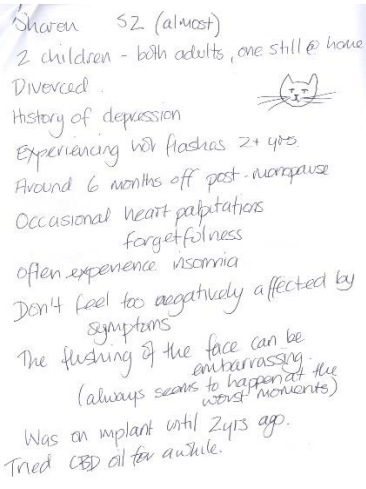 Sharon 52 (almost)
2 children - both adults, one still @ home
Divorced.
History of depression
Experiencing hot flashes 2+ yrs.
Around 6 months off post-menopause
Occasional heart palpitations
forgetfulness
often experience insomnia
Don't feel too negatively affected by
symptoms
The flushing of the face can be
embarrassing.
(always seems to happen at the
worst moments)
Was on implant until 2yrs ago.
Tried CBD oil for awhile.